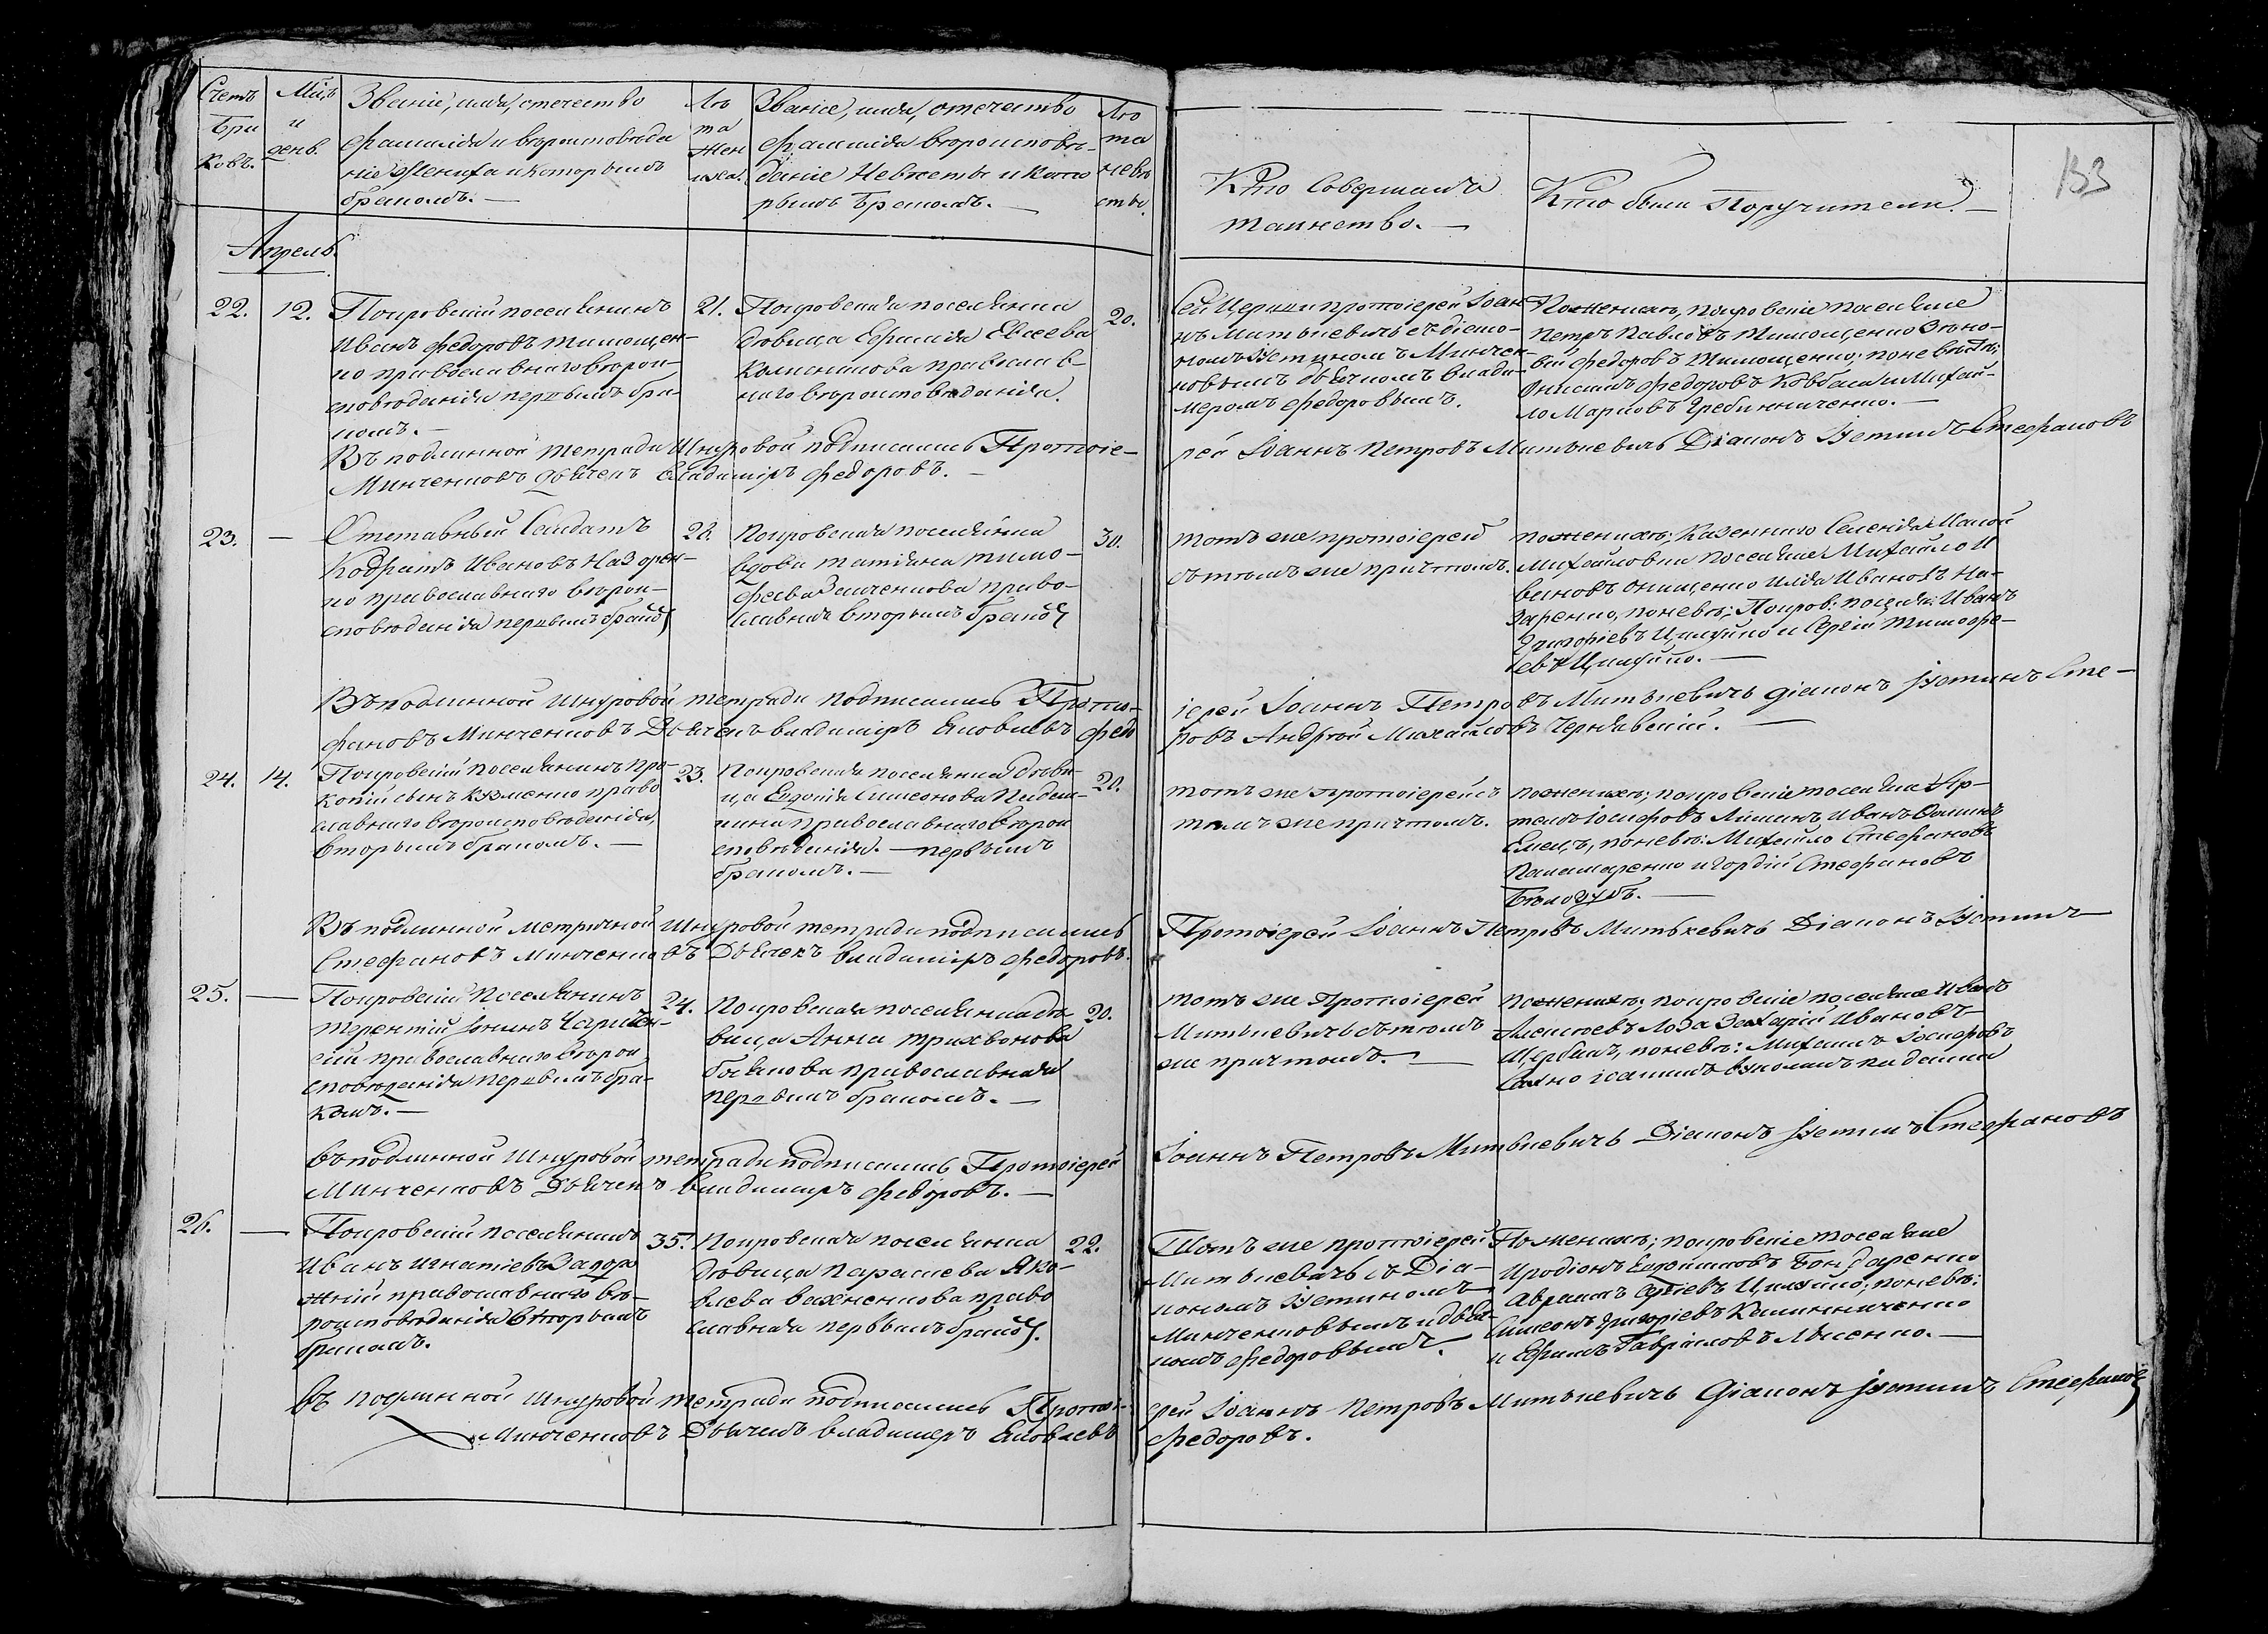 Счетъ
Бра
ковъ.
Мѣц.
и
день.
Званіе, имя, отечество
фамилія и вѣроисповѣда
ніе жениха и которымъ
бракомъ. —
Лѣ
та
жен
иха.
Званіе, имя, отечество
фамилія вѣроисповѣ-
даніе Невѣсты и кото
рымъ бракомъ. —
Лѣ
та
невѣ
сты.
Кто Совершалъ
таинство. —
Кто были Поручители. —
133
Апрель.
22.
12.
Покровскій поселянинъ
Иванъ Федоровъ Тимощен-
ко православнаго вѣрои-
сповѣданія первымъ бра-
комъ. —
21.
Покровская поселянка
дѣвица Евфимія Евсеева
православ-
наго вѣроисповѣданія.
20.
Сей Церкви протоіерей Іоан
нъ Митькевичь съ діако-
номъ Іустиномъ Минчен-
ковымъ дьячкомъ Влади-
меромъ Федоровымъ.
По женихѣ, покровскіе поселяне
Петръ Павловъ Тимощенко
Федоровъ Тимощенко; по невѣстѣ;
Федоровъ Ковбаса и Михай-
ло Марковъ Гребинниченко. —
Въ подлинной тетради Шнуровой подписались Протоіе-
рей Іоаннъ Петровъ Митькевичь Діаконъ Іустинъ Стефановъ
Минченковъ дьячекъ Владиміръ Федоровъ. —
23.
—
Отставный Салдатъ
Кодратъ Ивановъ Назарен-
ко православнаго вѣрои-
сповѣданія первымъ бракомъ
28.
Покровская поселянка
вдова Татіяна Тимо-
феева право-
славная вторымъ бракомъ
30.
тотъ же протоіерей
съ тѣмъ же причтомъ.
по женихѣ; Казеннаго Селенія Малой
Михайловки поселяне Михайло И
вановъ Онищенко Илія Ивановъ На-
заренко, по невѣ; Покров: поселя: Иванъ
Григоріевъ Цилуйко и Сергій Тимофе-
евъ Цилуйко. —
Въ подлинной Шнуровой тетради подписались Прото-
іерей Іоаннъ Петровъ Митькевичь діаконъ Іустинъ Сте-
фановъ Минченковъ Дьячекъ Владиміръ Яковлевъ Федо
ровъ Андрей Михайловъ Чернявскій. —
24.
14.
Покровскій поселянинъ Про-
копій сынъ Кузменко право
славнаго вѣроисповѣданія,
вторымъ бракомъ. —
23.
Покровская поселянка дѣви-
ца Евдокія Симеонова
православнаго вѣрои
сповѣданія. — первымъ
бракомъ. —
20.
тотъ же протоіерей съ
тѣмъ же причтомъ.
по женихѣ; покровскіе поселяне Ар-
темъ Іосифовъ Иванъ Фоминъ
Емецъ, по невѣ: Михайло Стефановъ
Паламаренко и Гордій Стефановъ
Бѣлозубъ. —
Въ подлинной метричной Шнуровой тетради подписались
Протоіерей Іоаннъ Петровъ Митькевичь Діаконъ Іустинъ
Стефановъ Минченковъ Дьячекъ Владиміръ Федоровъ.
25.
—
Покровскій Поселянинъ
Терентій
православнаго вѣрои
сповѣданія первымъ бра-
комъ. —
24.
Покровская поселянка дѣ-
вица Анна Трихвонова
православная
первымъ бракомъ. —
20.
тотъ же Протоіерей
Митькевичь съ тѣмъ
же причтомъ. —
По женихѣ; покровскіе поселяне Иванъ
Алексѣевъ Лоза Захарій Ивановъ
Щербакъ, по невѣ: Михаилъ Іосифовъ
въ подлинной Шнуровой тетради подписались Протоіерей
Іоаннъ Петровъ Митькевичь Діаконъ Іустинъ Стефановъ
Минченковъ Дьячекъ Владимиръ Федоровъ. —
26.
—
Покровскій поселянинъ
Иванъ Игнатіевъ Задоро
жній православнаго вѣ-
роисповѣданія вторымъ
бракомъ.
35.
Покровская поселянка
дѣвица Параскева Яко-
влева Вахненкова право
славная первымъ бракомъ.
22.
Тотъ же протоіерей
Митькевичь съ Діа-
кономъ Іустиномъ
Минченковымъ и дьяч-
комъ Федоровымъ.
По женихѣ; покровскіе поселяне
Иродіонъ Евдокимовъ Бондаренко
Авраамъ Сергіевъ Цилуйко; по невѣ:
Симеонъ Григоріевъ Калинниченко
и Ефимъ Гавриловъ Лысенко. —
въ подлинной Шнуровой тетради подписались Протоі-
ерей Іоаннъ Петровъ Митькевичь Діаконъ Іустинъ Стефановъ
Минченковъ Дьячекъ Владимеръ Яковлевъ
Федоровъ.